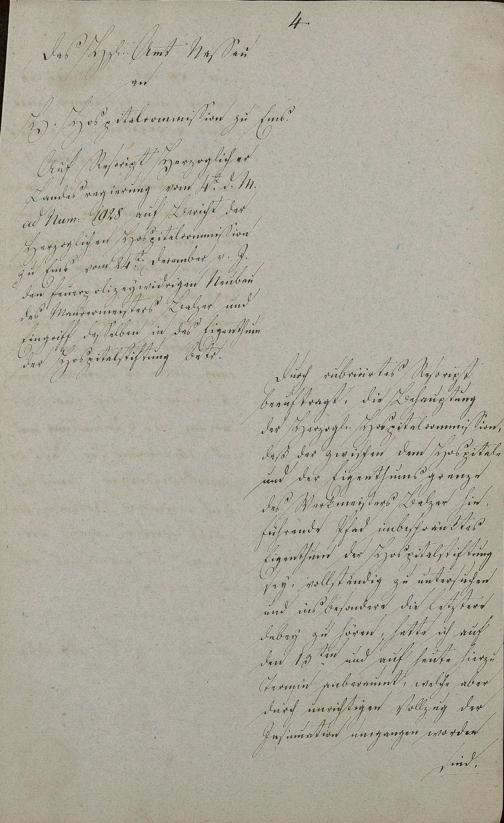 4
Das Hzgl. Amt Nassau
an
H. Hospitalcommission zu Ems.
Auf Rescript Herzoglicher
Landesregierung vom 4t. d. M.
ad Num. 1928 auf Bericht der
Herzoglichen Hospitalcommission
zu Ems vom 24t. December v. J.
den feuerpolizeywidrigen Neubau
des Maurermeisters Balzer und
Eingriff desselben in das Eigenthum
der Hospitalstiftung betr.
Durch rubricirtes Rescript
beauftragt, die Behauptung
der Herzogl. Hospitalcommission,
daß der zwischen dem Hospitale
und der Eigenthumsgrenze
des Werkmeisters Balzer hin
führende Pfad unbeschränktes
Eigenthum der Hospitalstiftung
sey, vollständig zu untersuchen
und insbesondere die letztere
dabey zu hören, hatte ich auf
den 13ten und auf heute hierzu
Termin anberaumt, welche aber
durch unrichtigen Vollzug der
Insinuation umgangen worden
sind.